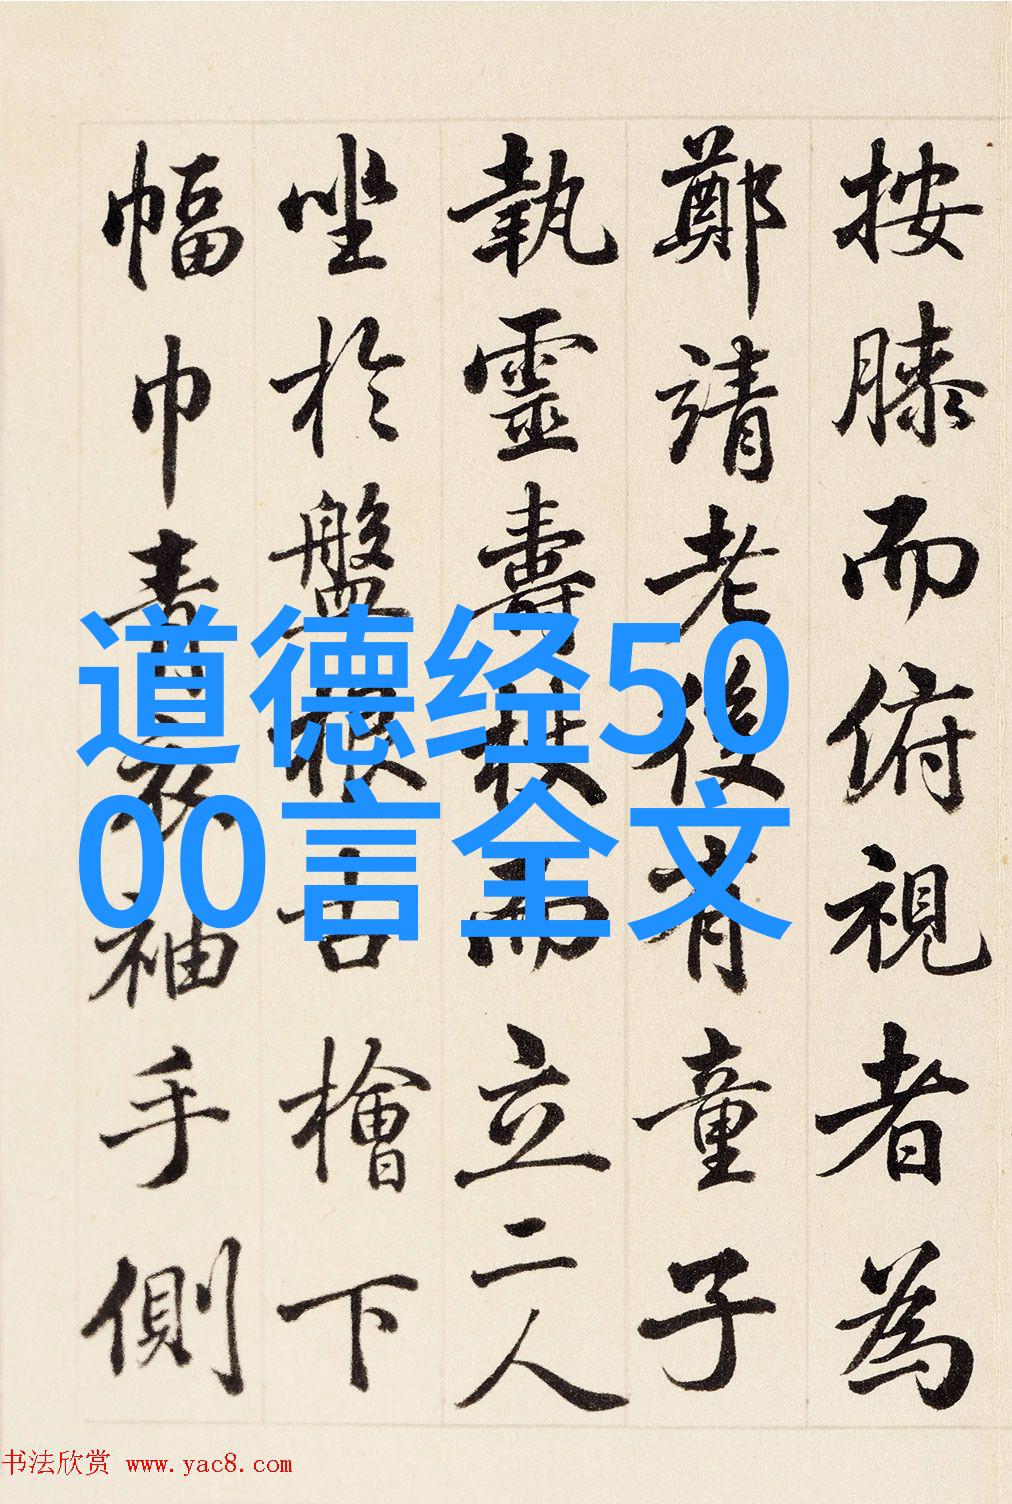 按膝而俯視者為
鄭靖老後有童子
執靈壽杖而立二人
坐於盤根古檜下
幅巾青衣袖手側
道德经50
00言全文
书法欣赏 www.yac8.com